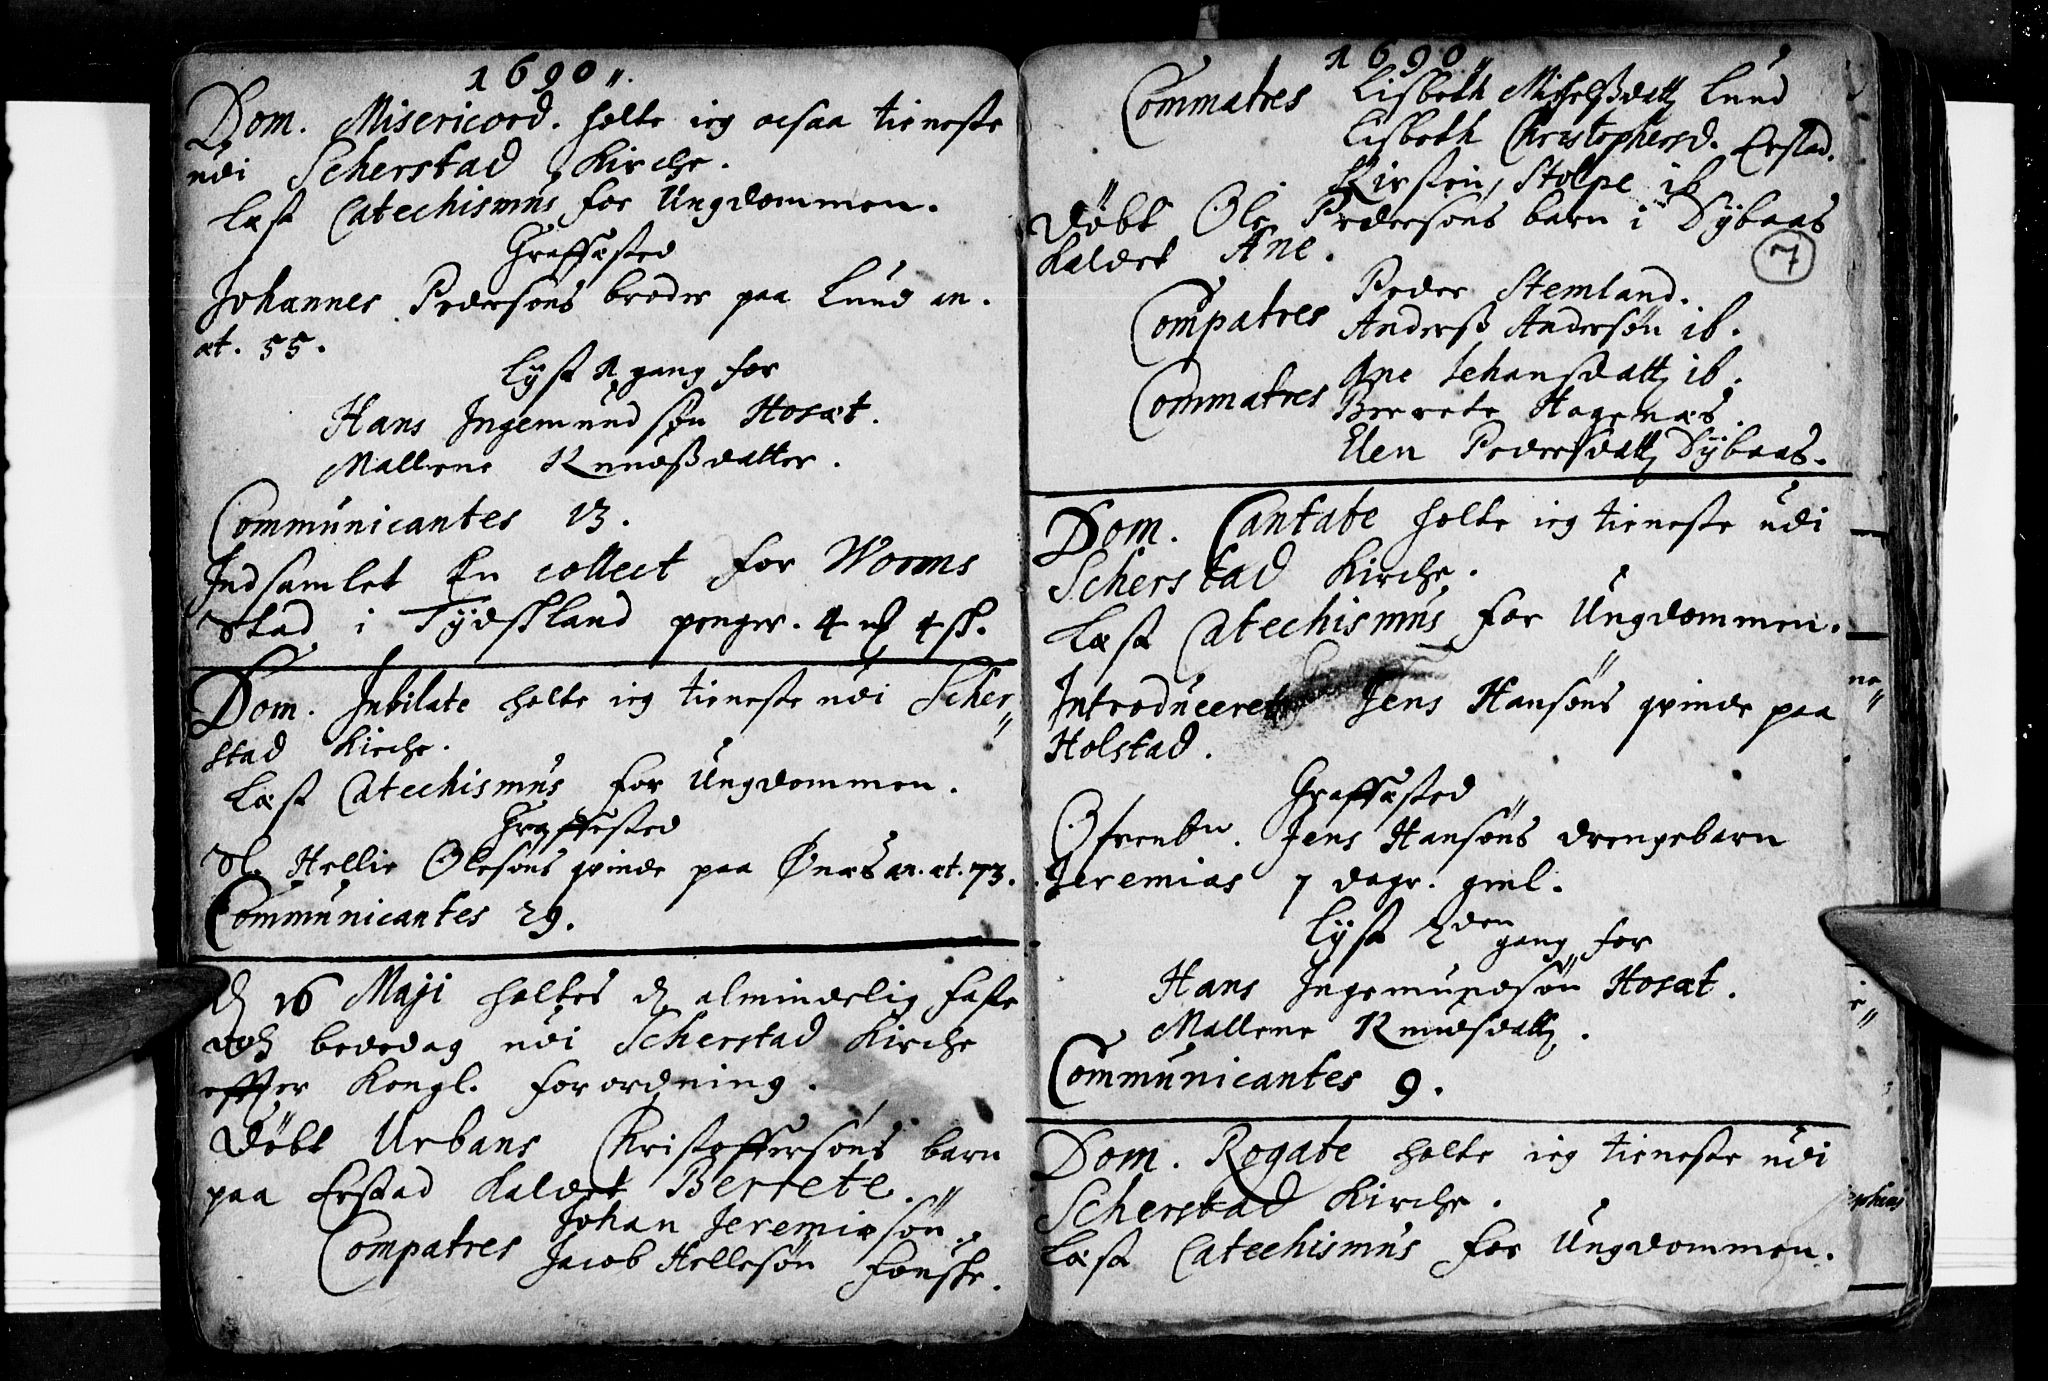 1690.
Dom. Misericord. holte ieg ocsaa tieneste
udi Scherstad Kirche.
Læst Catechismus for Ungdommen.
Graffæsted
Johannes Pedersøns broder paa Lund an.
æt. 55.
Lyst 1 gang for
Hans Ingemundsøn Hosæt.
Mallene Knudsdatter.
Communicantes 13.
Indsamlet En collect for Worms
Stad i Tydskland penger. 4 4 sk.
Dom. Jubilate holte ieg tieneste udi Scher„
stad Kirche.
Læst Catechismus for Ungdommen.
Graffæsted
Sl. Hellie Olesøns qvinde paa Ønæs an. æt. 73.
Communicantes 29.
D 16 Maji holtes d almindelig faste
och bededag udi Scherstad Kirche
effter Kongl. forordning.
Døbt Urbans Christoffersøns barn
paa Erstad kaldet Berrete.
Compatres Johan Jeremiæsøn.
Jacob Hellesøn Fouske.
1690
Commatres Lisbeth Michelsdatt Lund
Lisbeth Christophersd. Erstad.
Kirsten Stolpe ib
Døbt Ole Pedersøns barn i Dybaas
kaldet Ane.
7
Compatres Peder Stemland.
Anders Andersøn ib.
Commatres Ane Johansdatt ib.
Berrete Hagenæs.
Elen Pedersdatt Dybaas.
Dom. Cantate holte ieg tieneste udi
Scherstad Kirche.
Læst Catechismus for Ungdommen.
Introduceret Jens Hansøns qvinde paa
Holstad.
Graffæsted
Ofrenbn. Jens Hansøns drengebarn
Jeremias 7 dage. gml.
Lyst 2den gang for
Hans Ingemundsøn Hosæt.
Mallene Knudsdatt.
Communicantes 9.
Dom. Rogate holte ieg tieneste udi
Scherstad Kirche.
Læst Catechismus for Ungdommen.